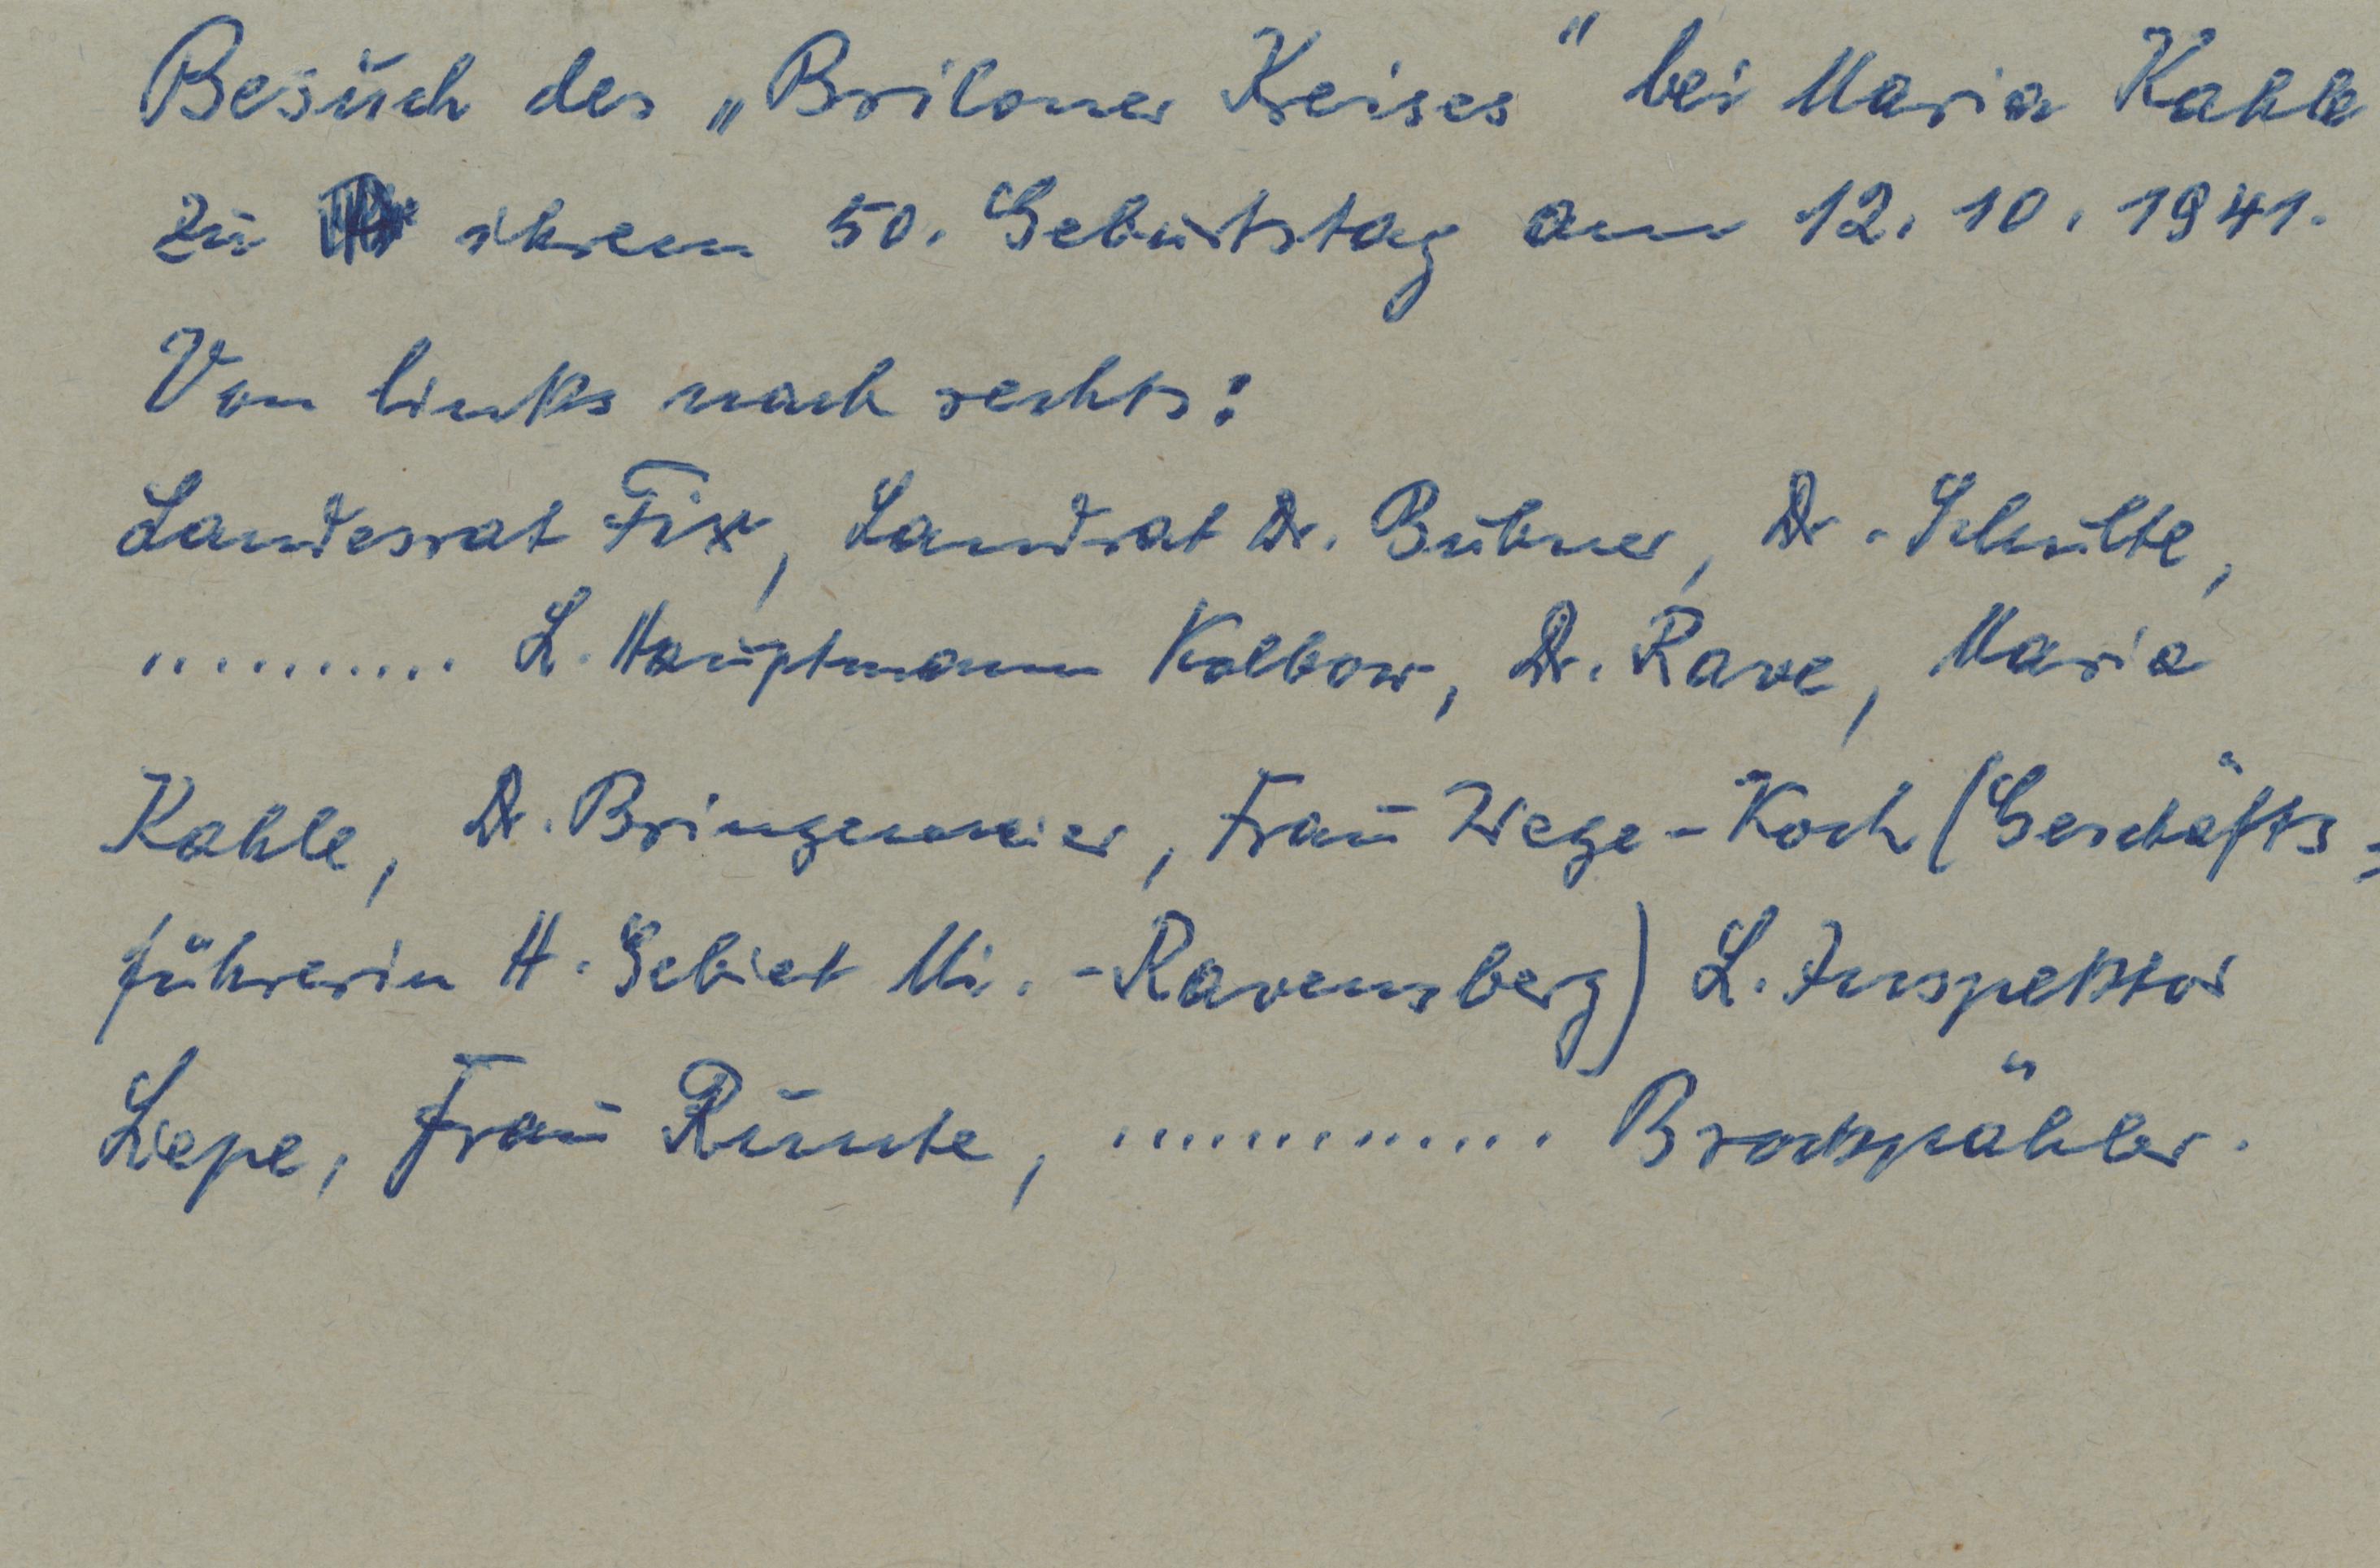 Besuch des „Briloner Kreises“ bei Maria Kahle
zu ihrem 50. Geburtstag am 12. 10. 1941.
Von links nach rechts:
Landesrat Fix, Landrat Dr. Bubner, Dr. Schulte,
.......... L. Hauptmann Kolbow, Dr. Rave, Maria
Kahle, Dr. Bringemeier, Frau Wege-Koch (Geschäfts=
führerin H. Gebiet Mi.-Ravensberg) L. Inspektor
Liepe, Frau Runte, ............. Brockpähler.